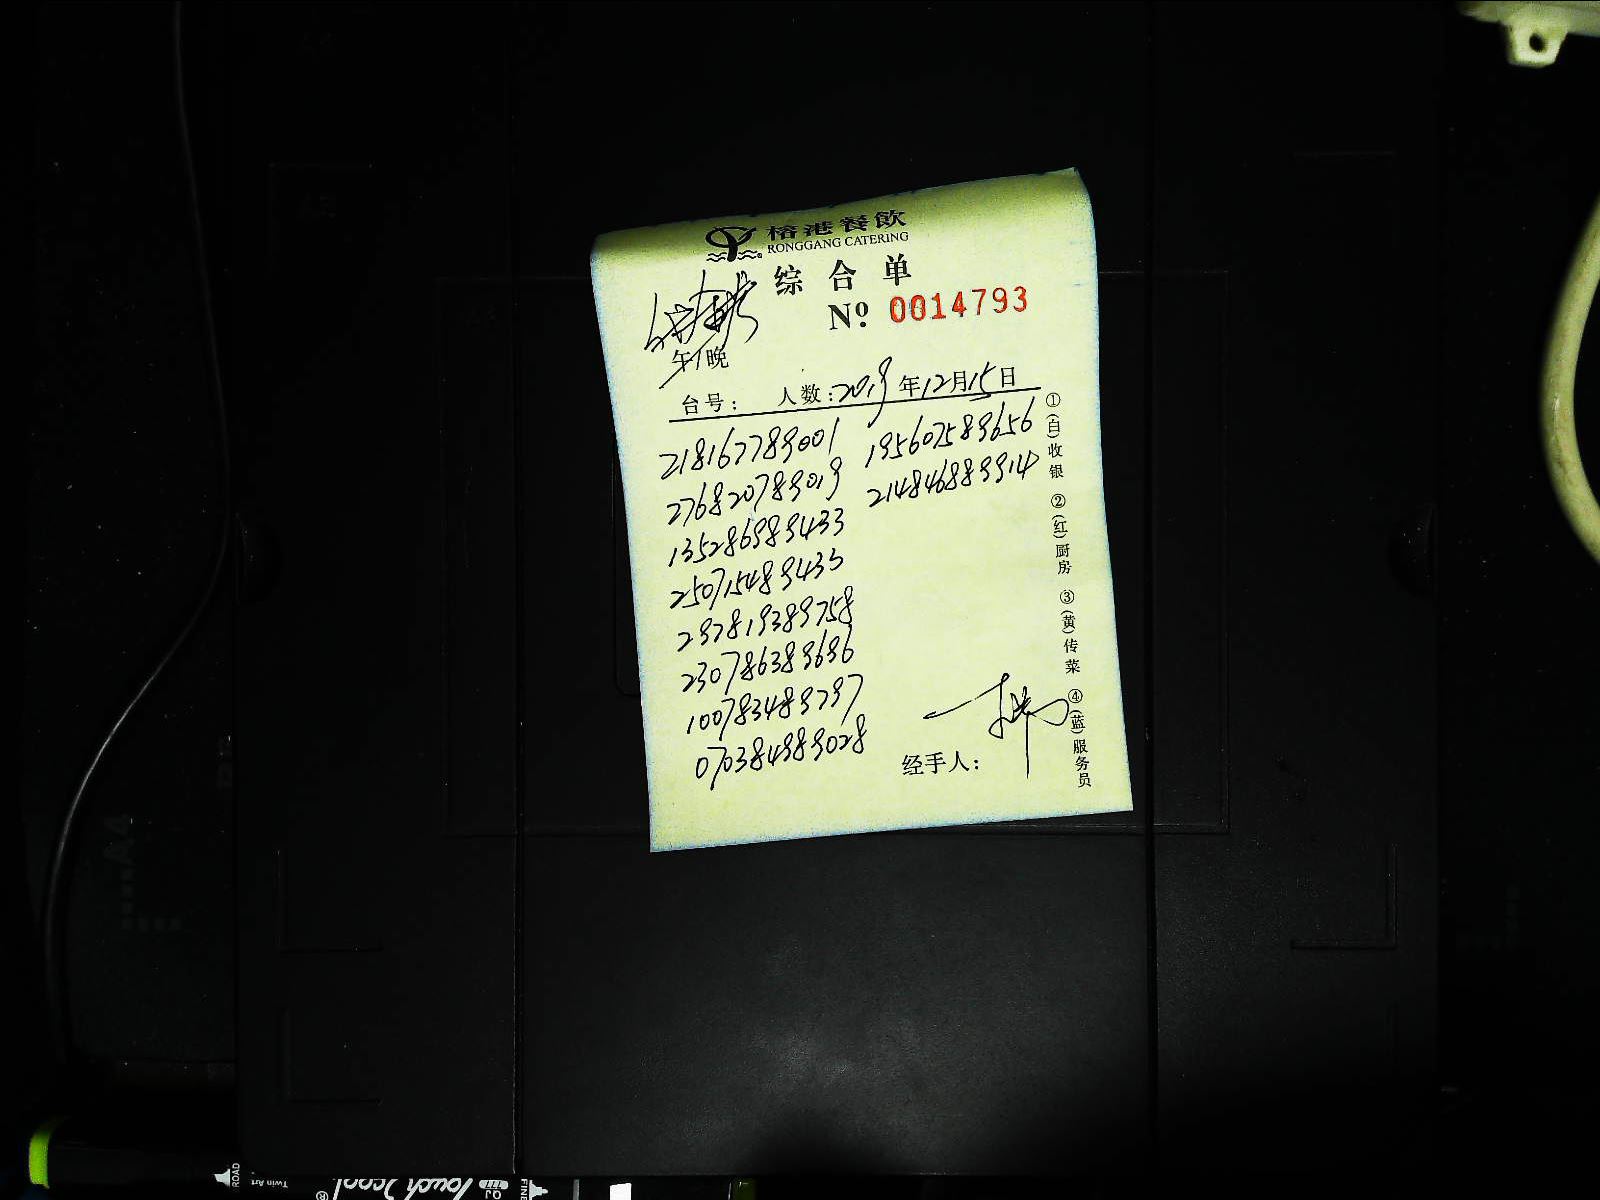 榕港餐飲
RONGGANG CATERING
综合单
Nº 0014793
午/晚
台号: 人数: 2019年12月15日
218167789001 195607589656
276820789019 214846889914
135286989433
250715489435
297819389758
230786389696
100783489797
070384989028
经手人:
①(白)收银 ②(红)厨房 ③(黄)传菜 ④(蓝)服务员
A4
ROAD
Twin Art
Touch 2cool
FINE